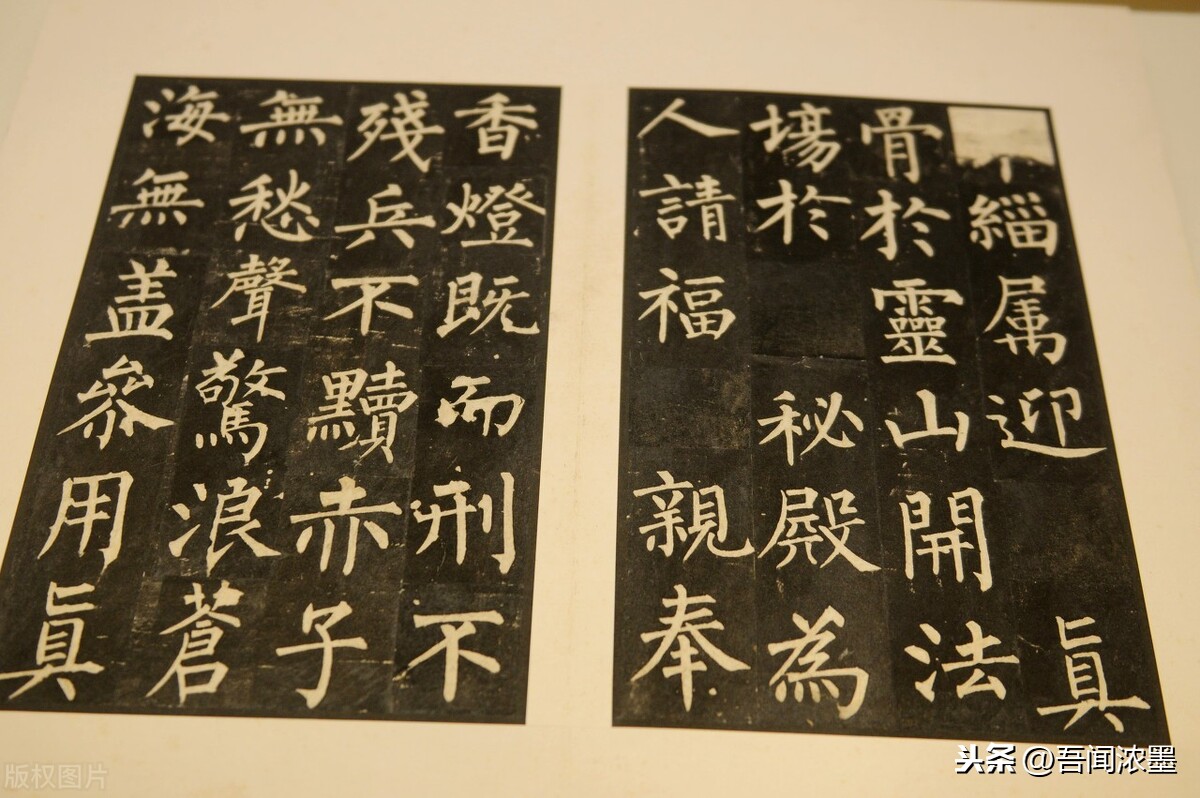 緇属迎 眞
骨於靈山開法
場於 秘殿為
人請福 親奉
香燈既而刑不
殘兵不黷赤子
無愁聲驚浪蒼
海無盖叅用眞
版权图片
头条 @吾闻浓墨